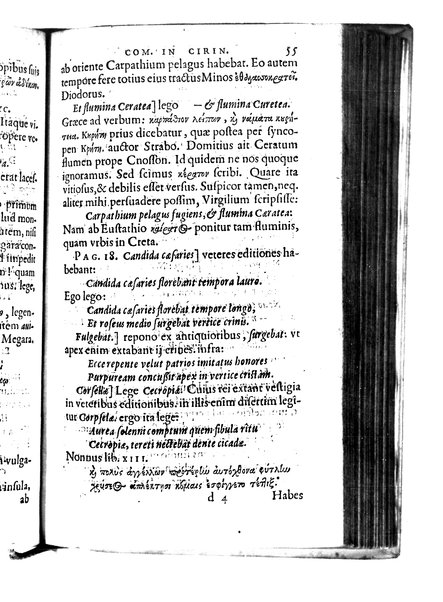 COM. IN CIRIN. 55
ab oriente Carpathium pelagus habebat. Eo autem
tempore fere totius eius tractus Minos ἐθαλασσοκράτει.
Diodorus.
Et flumina Ceratea] lego — & flumina Curetea.
Græce ad verbum: καρπάθιον λείπων, καὶ νάματα
Κρήτη prius dicebatur, quæ postea per syncopen
Κρήτη. auctor Strabo. Domitius ait Ceratum
flumen prope Cnosson. Id quidem ne nos quoque
ignoramus. Sed scimus κέρατον scribi. Quare ita
vitiosus, & debilis esset versus. Suspicor tamen, neq.
aliter mihi persuadere possim, Virgilium scripsisse:
Carpathium pelagus fugiens, & flumina Cæratea:
Nam ab Eustathio καίρατος ponitur tam fluminis,
quam vrbis in Creta.
PAG. 18. Candida cæsaries] veteres editiones ha-
bebant:
Candida cæsaries florebant tempora lauro.
Ego lego:
Candida cæsaries florebat tempore longo,
Et roseus medio surgebat vertice crinis.
Fulgebat.] repono ex antiquioribus, surgebat: vt
apex enim extabant ij crines. infra:
Ecce repente velut patrios imitatus honores
Purpuream concussit apex in vertice cristam.
Corsella] Lege Cecropiæ. Cuius rei extant vestigia
in veteribus editionibus. in illis enim disertim legi-
tur Corpselæ. ergo ita lege:
Aurea solenni comptum quem fibula ritu
Cecropiæ, tereti nectebat dente cicadæ.
Nonnus lib. XIII.
καὶ πολὺς
d 4 Habes
opibus suis
Itaque vi.
opere vo-
erat laces-
primum
niam in-
quam
lege,
legen-
item
Megara.
vulga-
insula,
ab